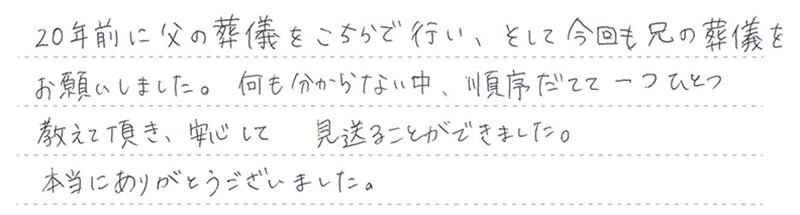 20年前に父の葬儀をこちらで行い、そして今回も兄の葬儀を
お願いしました。何も分からない中、順序だてて一つひとつ
教えて頂き、安心して 見送ることができました。
本当にありがとうございました。